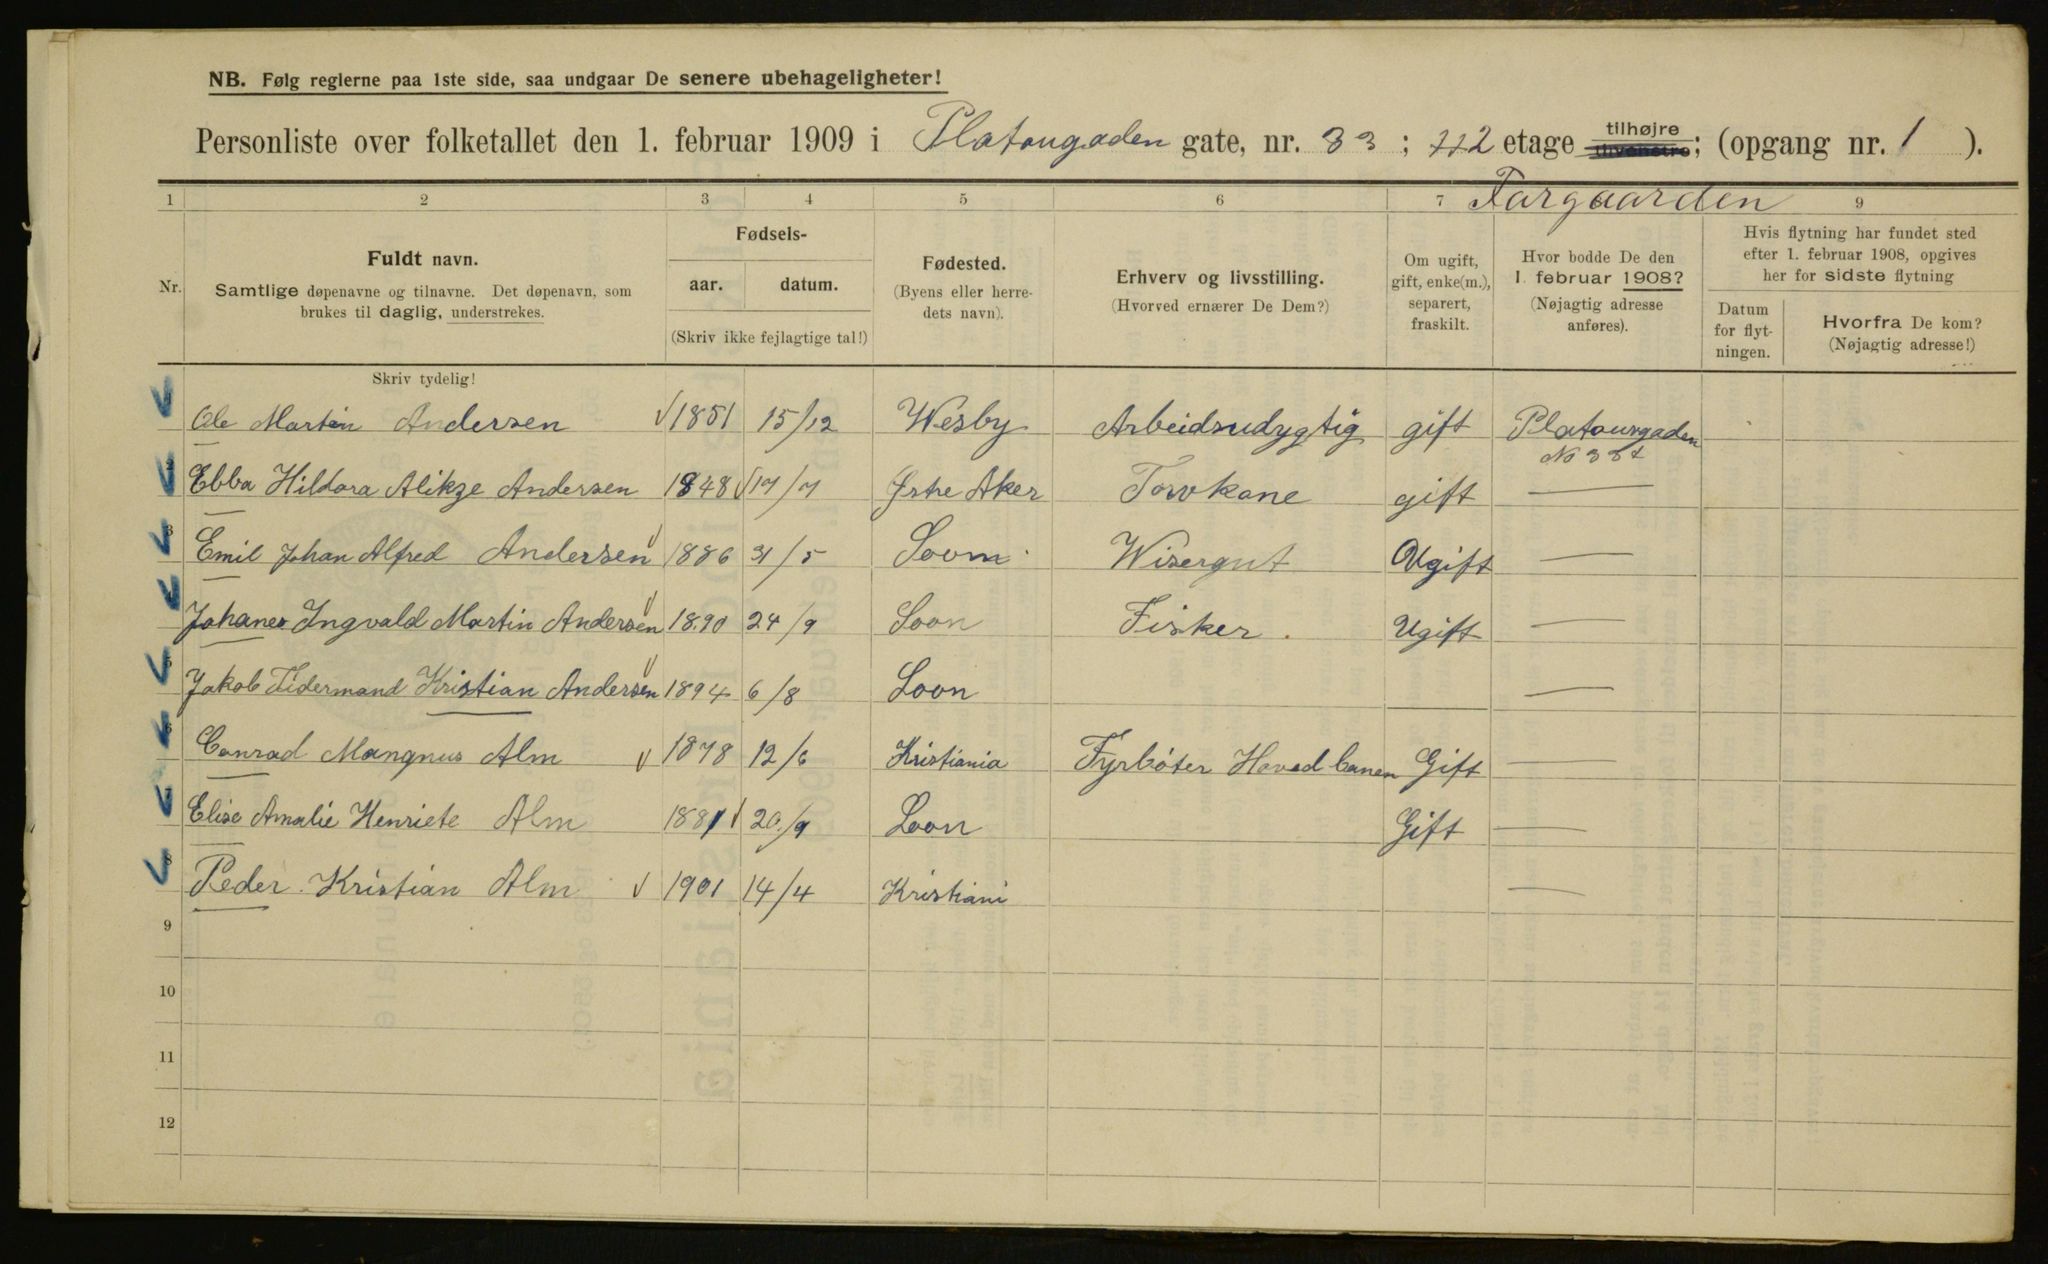 NB. Følg reglerne paa 1ste side, saa undgaar De senere ubehageligheter!
Personliste over folketallet den 1. februar 1909 i Platougaden gate, nr. 33; 2 etage tilhøjre tilvenstre; (opgang nr. 1).
Forgaarden
1 2 3 4 5 6 7 9
Nr.
Fuldt navn.
Samtlige døpenavne og tilnavne. Det døpenavn, som
brukes til daglig, understrekes.
Fødsels-
aar. datum.
(Skriv ikke fejlagtige tal!)
Fødested.
(Byens eller herre-
dets navn).
Erhverv og livsstilling.
(Hvorved ernærer De Dem?)
Om ugift,
gift, enke(m.),
separert,
fraskilt.
Hvor bodde De den
1. februar 1908?
(Nøjagtig adresse
anføres).
Hvis flytning har fundet sted
efter 1. februar 1908, opgives
her for sidste flytning
Datum
for flyt-
ningen.
Hvorfra De kom?
(Nøjagtig adresse!)
Skriv tydelig!
Ole Martin Andersen 1851 15/12 Wesby Arbeidsudygtig gift Platousgaden
No 33
2 Ebba Hildora Andersen 1848 17/7 Østre Aker Torvkone gift —
3 Emil Johan Alfred Andersen 1886 31/5 Soon Wisergut Ugift —
Johanes Ingvald Martin Andersen 1890 24/9 Soon Fisker Ugift —
5 Jakob Tidermand Kristian Andersen 1894 6/8 Soon —
6 Conrad Mangnus Alm 1878 12/6 Kristiania Fyrbøter Hovedbanen Gift —
7 Elise Amalie Henriete Alm 1881 20/9 Soon Gift —
8 Peder Kristian Alm 1901 14/4 Kristiani —
9
10
11
12